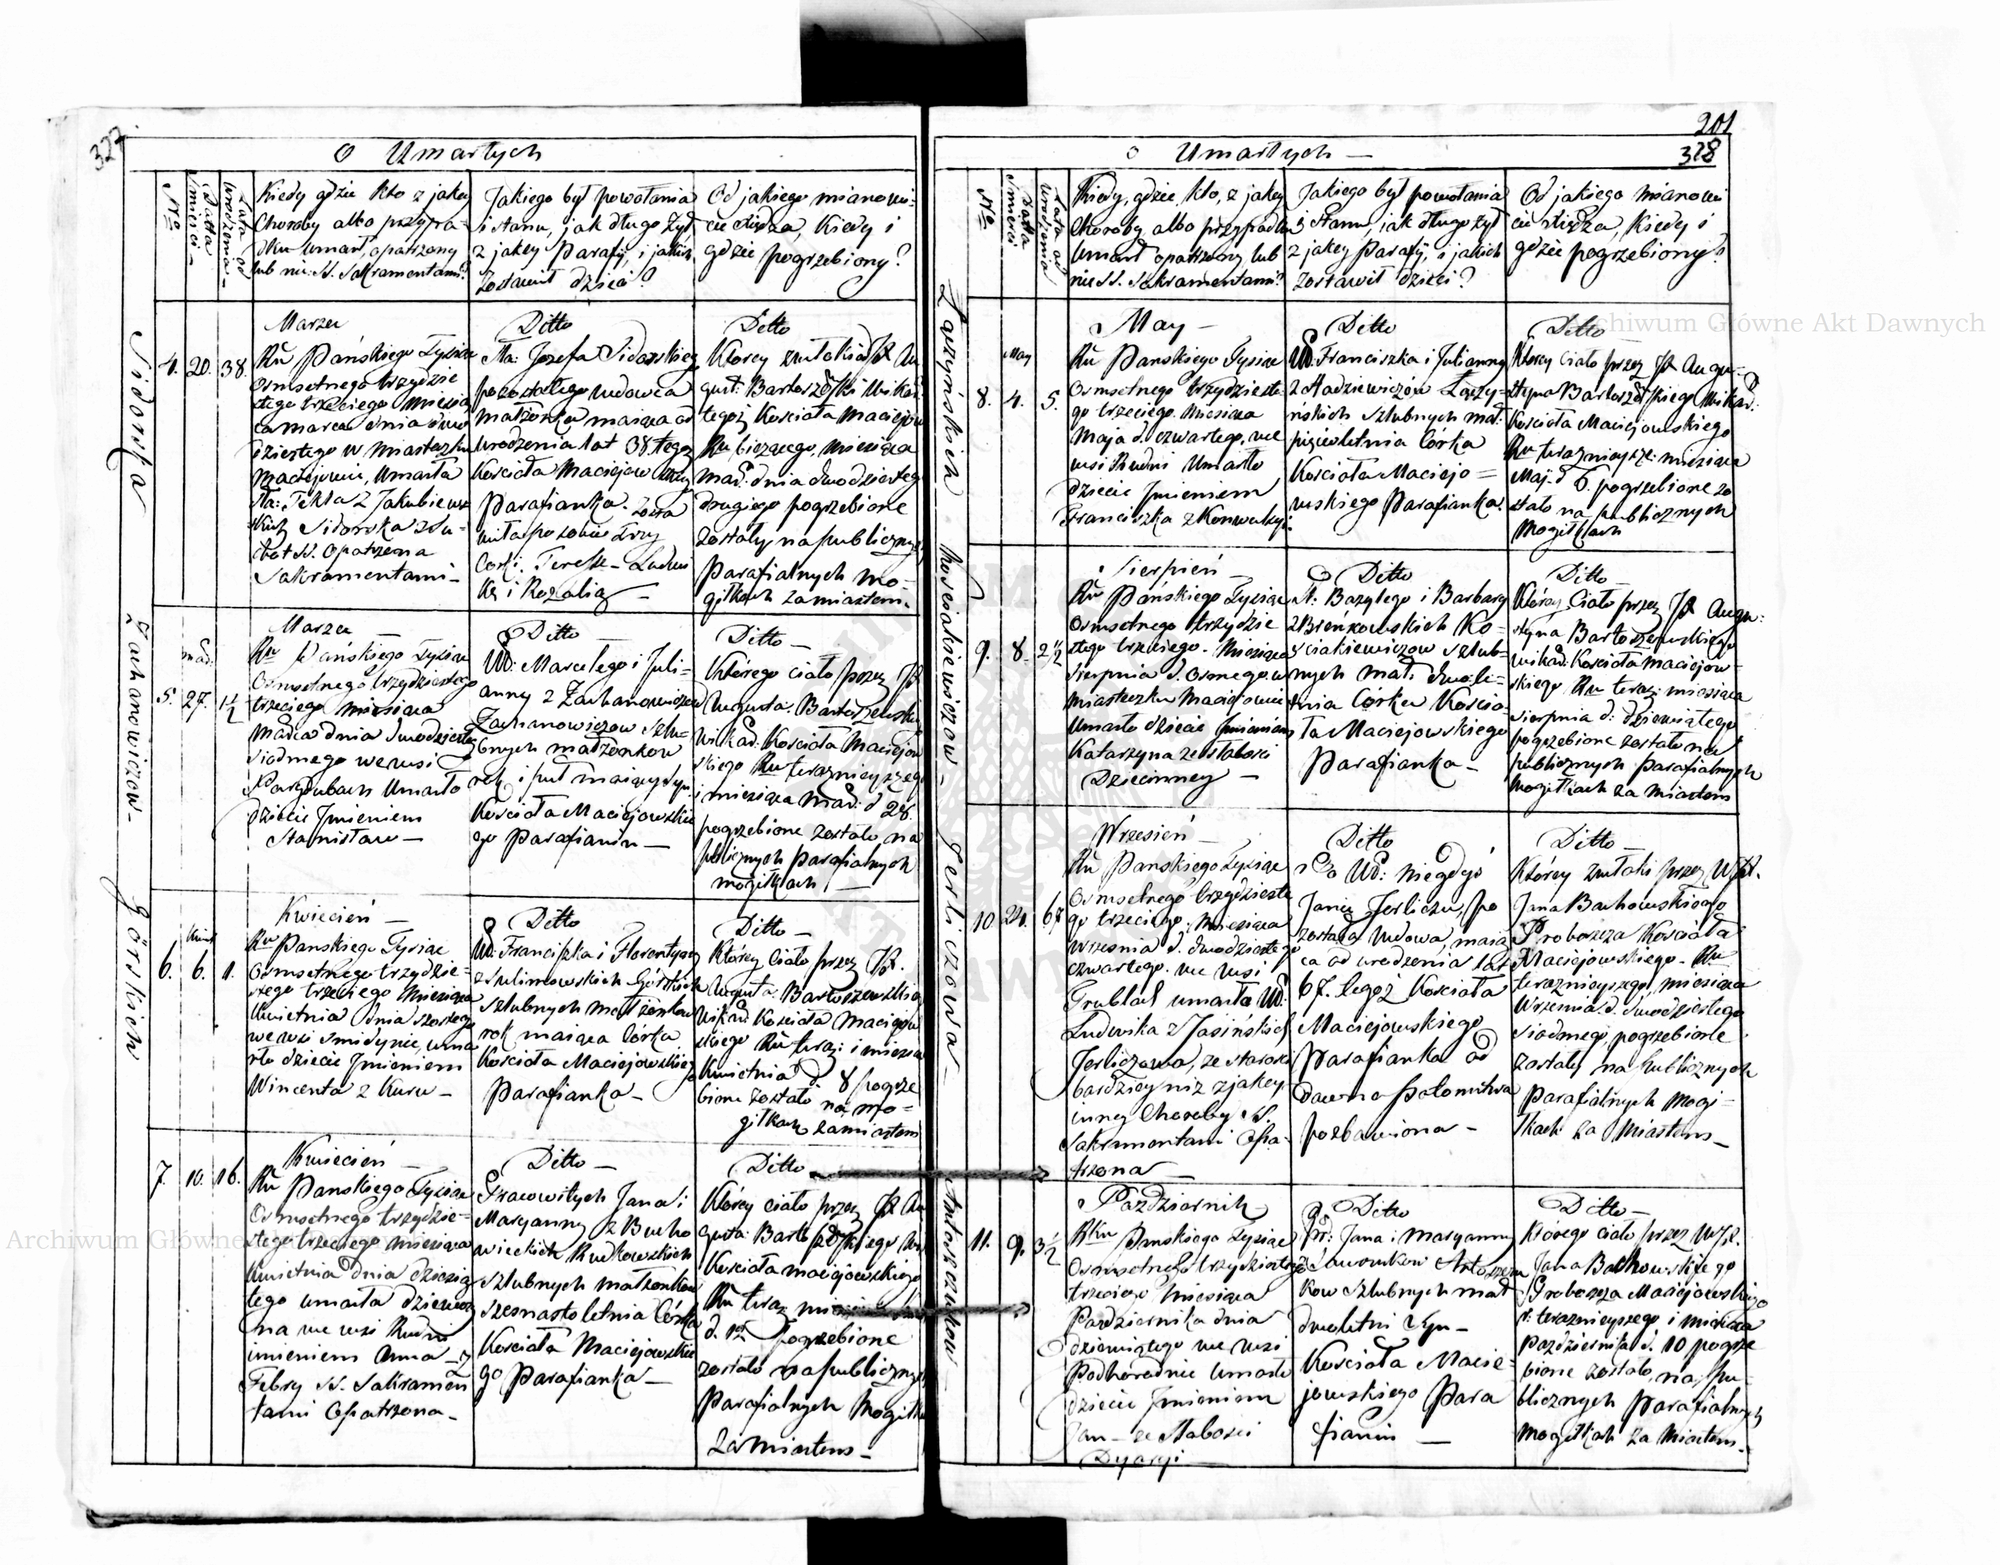 327
O Umarłych
Nro
Datta śmierci
Lata od urodzenia
Kiedy gdzie kto z jakey
Choroby albo przypra-
dku umarł, opatrzony
lub nie SS. Sakramentami?
Jakiego był powołania
i stanu, jak długo żył
z jakey Parafij, i jakich
zostawił dzieci?
Od jakiego mianowi-
cie Xiędza, Kiedy i
gdzie pogrzebiony?
Sidorska
4. 20. 38.
Marzec
Ru Pańskiego Tysiąc
Osmsetnego trzydzie
stego trzeciego Miesią
ca marca dnia dwu
dziestego w Miasteczku
Maciejowie, Umarła
Tekla z Jakubiews
kich Sidorska z Su-
chot SS. opatrzona
Sakramentami -
Ditto
Józefa Sidorskiego
pozostałego wdowca
małżonka maiąca od
urodzenia lat 38 tegoż
Kościoła Maciejow
Parafianka. zosta
wiła po sobie trzy
Corki: Teresse - Ludwi
kę i Rozalią -
Ditto
Ktorey zwłoki
gust: Bartoszewski Wikar
tegoż Kościoła Maciejow
Ru bieżącego, Miesiąca
mar: dnia dwudziestego
drugiego pogrzebione
zostały na publicznych
parafialnych mo-
giłkach za miastem.
Zachanowiczow -
mar:
5. 27. 1½
Marzec
Ru Pańskiego Tysiąc
Osmsetnego trzydziestego
trzeciego miesiąca
Marca dnia dwudziestego
siodmego we wsi
Parydubach Umarło
dziecie Jmieniem
Stanisław -
Ditto -
Ur: Marcelego i Juli-
anny z Zachanowiczow
Zachanowiczow szlu-
bnych małżonkow
rok i puł maiący syn
Kościoła Maciejowskie
go Parafianin -
Ditto -
Którego ciało przez JX
Augusta. Bartoszewski
Wikar: Kościoła Maciejow
skiego Ru teraznieyszego
i miesiąca mar: d 28.
pogrzebione zostało, na
publicznych parafialnych
mogiłkach -
Górskich
Kwiet
6. 6. 1.
Kwiecień -
Ru Panskiego Tysiąc
Osmsetnego trzydzie-
stego trzeciego Miesiąca
Kwietnia dnia szostego
we wsi Smidynie, uma
rło dziecie Jmieniem
Wincenta z Kuru -
Ditto
Ur: Franciszka i Florentyny
z Sulimowskich Górskich
szlubnych małżonkow
rok maiąca Corka
Kościoła Maciejowskiego
Parafianka -
Ditto -
Którey Ciało przez JX.
Augusta Bartoszewskie
Wikar: Kościoła Maciejow
skiego Ru teraz: i miesią
Kwietnia d 8 pogrze
bione zostało na mo-
giłkach za miastem
7. 10. 16.
Kwiecień -
Ru Panskiego Tysiąc
Osmsetnego trzydzie-
stego trzeciego Miesiąca
Kwietnia dnia dziesią
tego umarła dziewczy
na we wsi Rudni
imieniem Anna z
Febry SS. Sakramen
tami Opatrzona -
Ditto -
Pracowitych Jana i
Maryanny z Bucho
wieckich Rutkowskich
szlubnych małżonkow
szesnastoletnia Córka
Kościoła Maciejowskie
go Parafianka -
Ditto
Którey ciało przez JX Au
gusta: Bartoszewskiego Wi
Kościoła maciejowskiego
Ru teraz
d. 12 pogrzebione
zostało na publicznych
Parafialnych Mogiłk
za miastem -
201
328
O Umarłych -
Nro
Datta Smierci
Lata od Urodzenia
Kiedy, gdzie, kto, z jakey
Choroby albo przypadku
Umarł opatrzony lub
nie SS. Sakramentami?
Jakiego był powołania
i stanu, jak długo żył
z jakey Parafij, i jakich
zostawił dzieci?
Od jakiego mianowi
cie Xiędza, Kiedy i
gdzie pogrzebiony?
Łączyńskich
May
8. 4. 5.
May -
Ru Panskiego Tysiąc
Osmsetnego trzydzieste-
go trzeciego Miesiąca
Maja d. czwartego, we
wsi Rudni Umarło
dziecie Jmieniem
Franciszka z Konwulsyi
Ditto
Ur: Franciszka i Julianny
z Stadziewiczów Łączy-
nskich szlubnych mał:
pięcioletnia Córka
Kościoła Maciejo =
wskiego Parafianka.
Ditto
Ktorey Ciało przez JX Augu-
styna Bartoszewskiego Wikar:
Kościoła Maciejowskiego
Ru teraznieysze: miesiąca
Maj. d 6. pogrzebione zo
stało na publicznych
Mogiłkach
Kościakiewiczow -
9. 8. 2½
Sierpień -
Ru Pańskiego Tysiąc
Osmsetnego trzydzie
stego trzeciego. Miesiąca
Sierpnia d. Osmego w
Miasteczku Maciejowie
Umarło dziecie Jmieniem
Katarzyna ze słabości
Dziecinney -
Ditto
Bazylego i Barbary
z Bienkowskich Ko-
sciakiewiczow szlub-
nych mał: dwule-
tnia Córka Kościo-
ła Maciejowskiego
Parafianka -
Ditto -
Którey Ciało przez JX Augu:
styna Bartoszewskiego
wikar. Kościoła Maciejow-
skiego Ru teraz: miesiąca
Sierpnia d: dziewiątego
pogrzebione zostało na
publicznych parafialnych
Mogiłkach za miastem
Jerliczowa -
10. 24. 67
Wrzesień -
Ru Panskiego Tysiąc
Osmsetnego trzydzieste
go trzeciego, Miesiąca
Wrzesnia d. dwudziestego
czwartego. we wsi
umarła Ur:
Ludwika z Jasińskich
Jerliczowa, ze starosci
bardziey niż z jakey
inney Choroby SS.
Sakramentami Opa-
trzona -
Ditto
Ur: niegdyś
Jerliczu, po
została Wdowa, maią
ca od urodzenia lat
67. tegoż Kościoła
Maciejowskiego
Parafianka od
dawna
pozbawiona -
Ditto -
Którey zwłoki przez WJX.
Jana Bachowskiego
Proboszcza Kościoła
Maciejowskiego - Ru
teraznieyszego, miesiąca
Wrzesnia d. dwudziestego
siodmego pogrzebione
zostały na publicznych
Parafialnych Mogi-
łkach za Miastem -
Antoszczukow -
11. 9. 3½
Pazdziernik -
Roku Pańskiego Tysiąc
Osmsetnego trzydziestego
trzeciego Miesiąca
Pazdziernika dnia
dziewiątego we wsi
Podhorodnie Umarło
dziecie Jmieniem
Jan - ze słabosci
Dyaryi -
Ditto
Pr: Jana i Maryanny
kow szlubnych mał
dwuletni Syn -
Kościoła Macie-
jowskiego Para
fianin -
Ditto -
Którego ciało przez WJX.
Jana Bachowskiego
Proboszcza Maciejowskiego
r: teraznieyszego i miesiąca
Pazdziernika d. 10 pogrze
bione zostało, na pu-
blicznych parafialnych
Mogiłkach za Miastem -
Archiwum Główne Akt Dawnych
Archiwum Główne Akt Dawnych